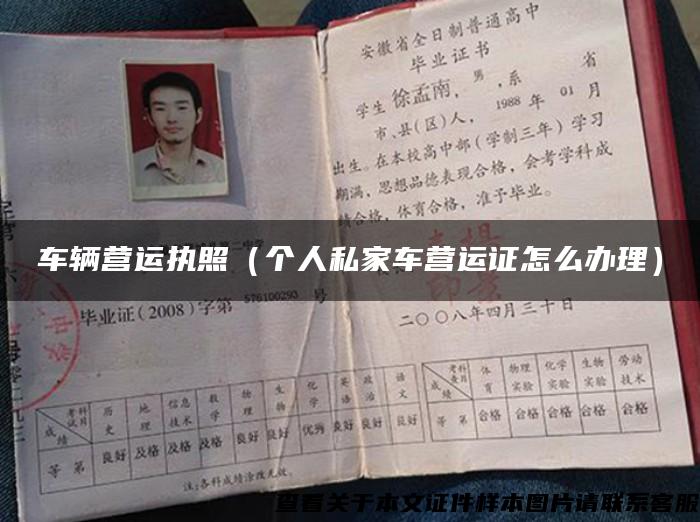 安徽省全日制普通高中
毕业证书
学生 徐孟南，男，系 省
市、县(区)人，1988年01月
出生。在本校高中部（学制三年）学习
期满，思想品德表现合格，会考学科成
绩合格，体育合格，准予毕业。
车辆营运执照（个人私家车营运证怎么办理）
毕业证(2008)字第 576100293 号
二〇〇八年四月三十日
成绩 考试科目 历史 地理 信息技术 数学 物理 生物 化学 英语 政治 语文
等第 良好 及格 及格 及格 良好 良好 优秀 良好 良好 良好
注:各科成绩涂改无效。
成绩 考查科目 体育 物理实验 化学实验 生物实验 劳动技术
等第 合格 合格 合格 合格 合格
查看关于本文证件样本图片请联系客服